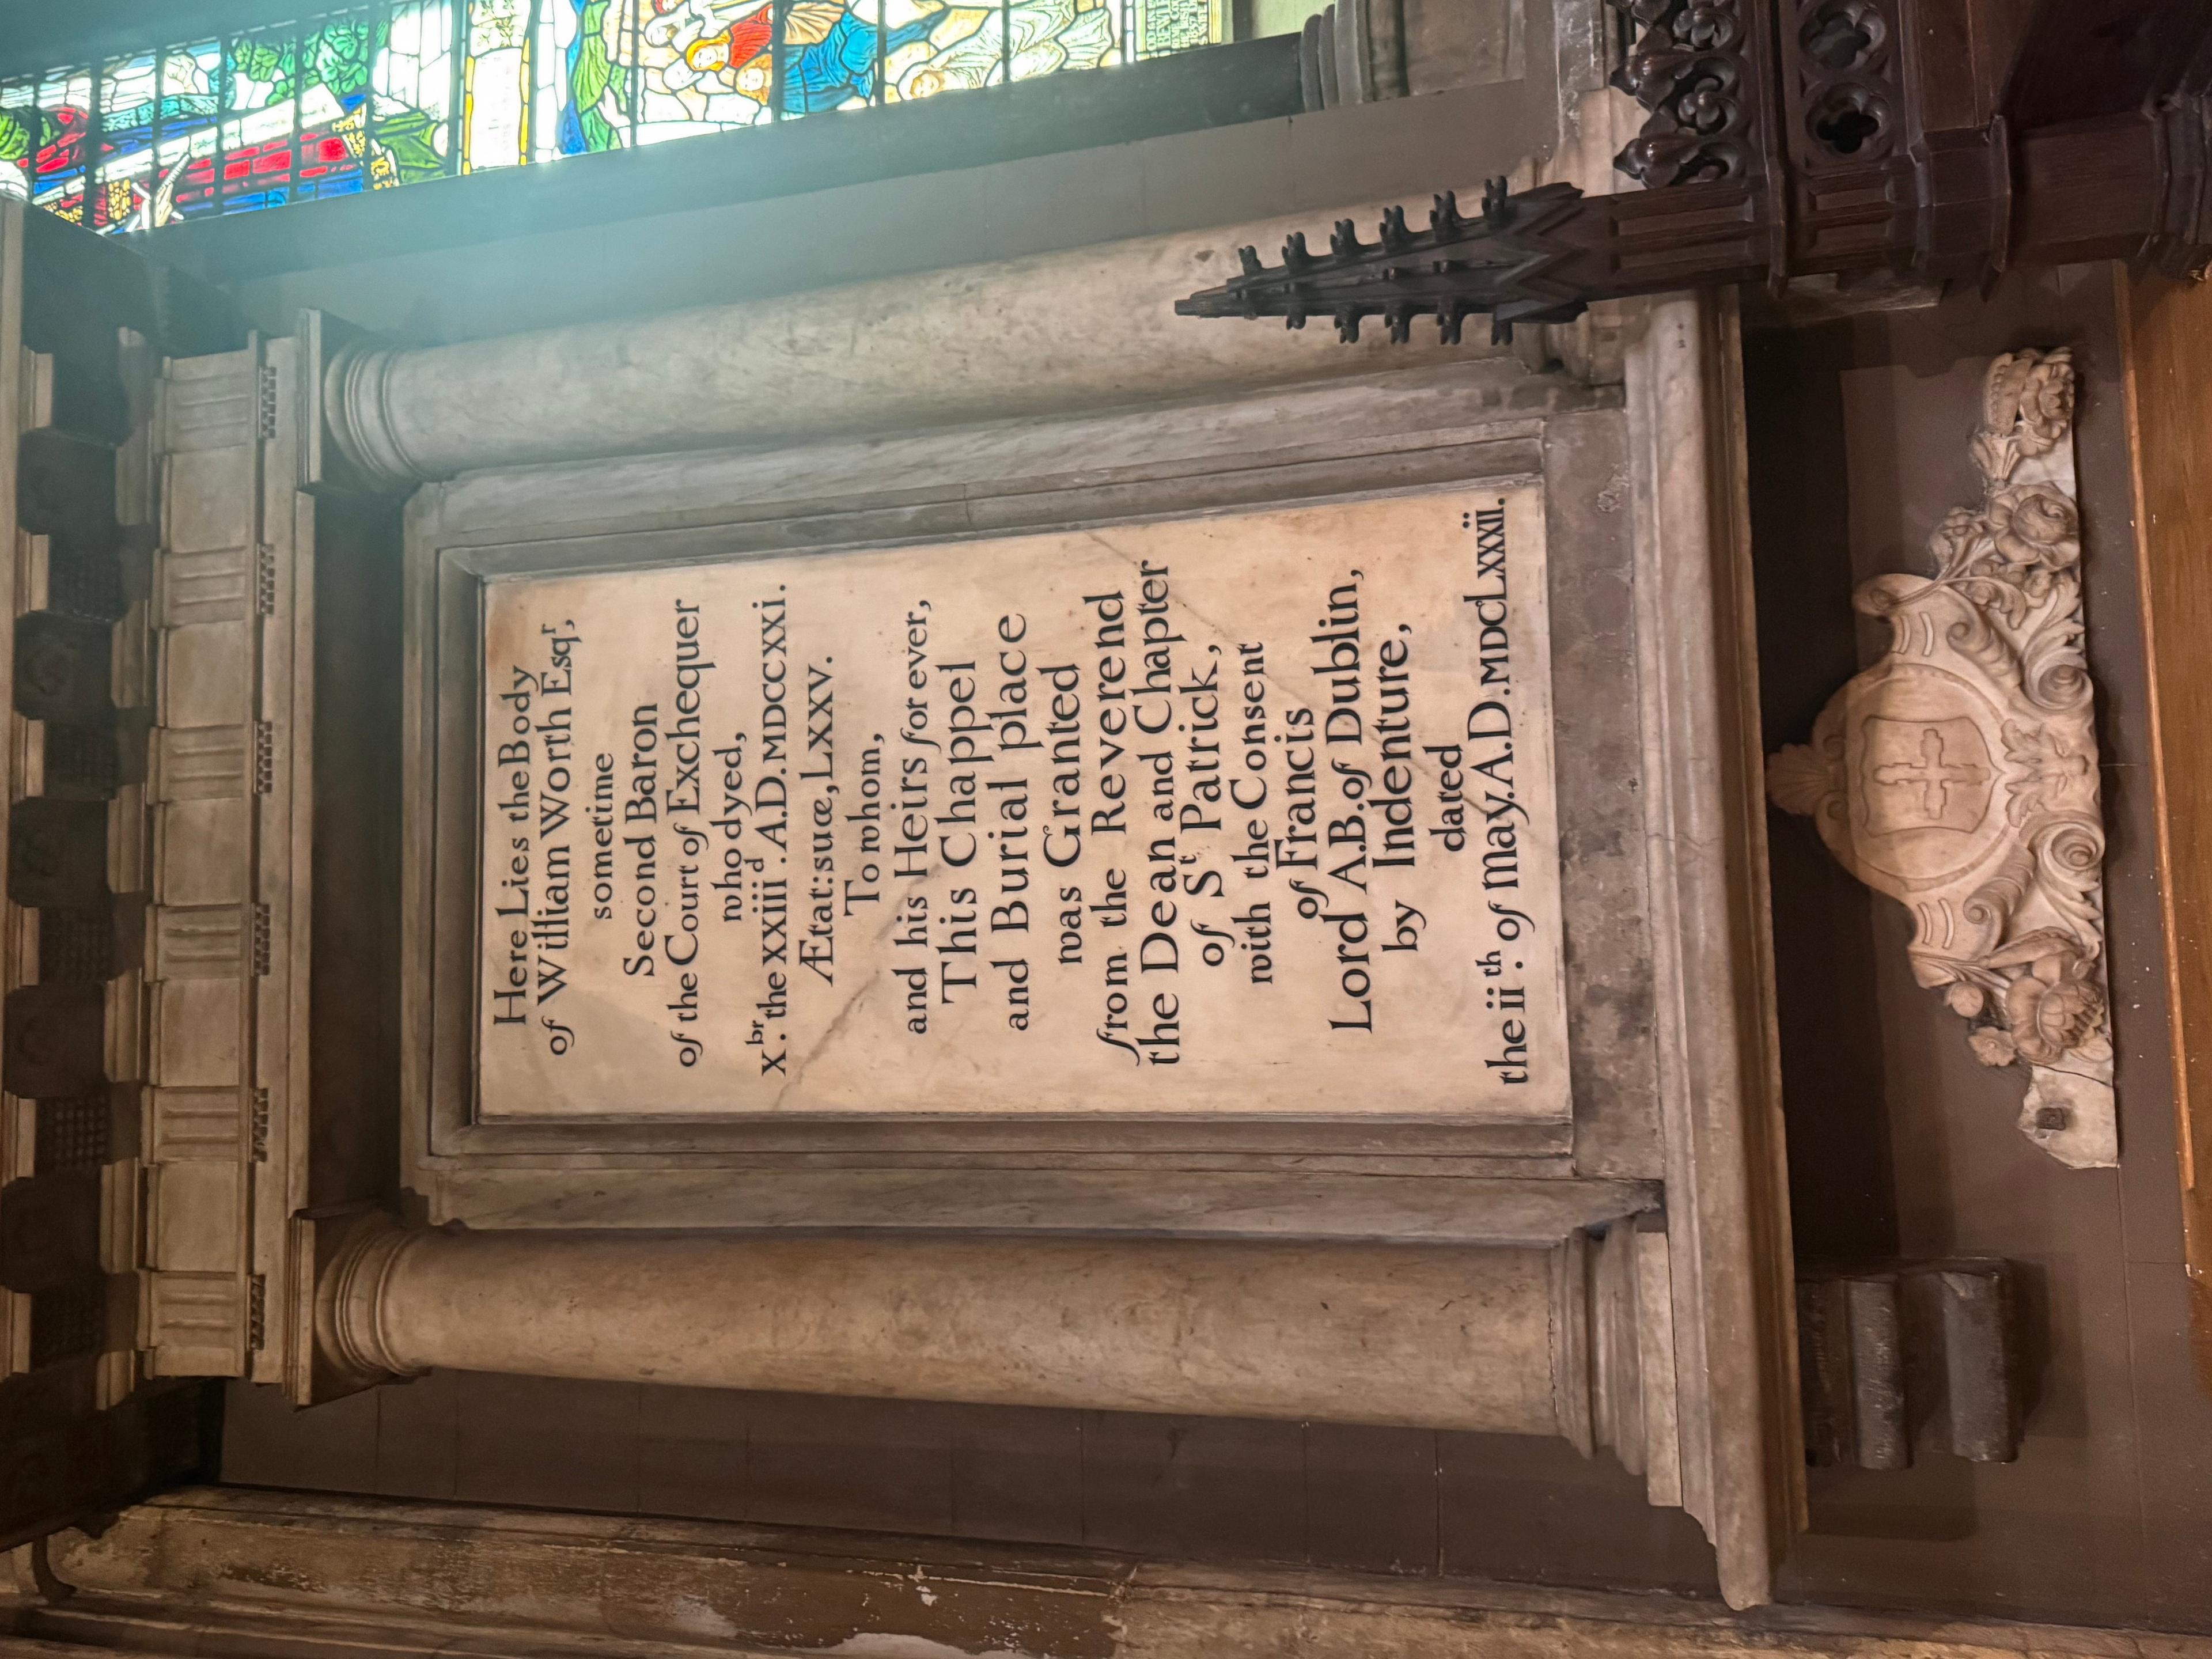 Here Lies the Body
of William Worth Esqr,
sometime
Second Baron
of the Court of Exchequer
who dyed,
Xbr. the XXIIId. A.D. MDCCXXI.
Ætat: suæ, LXXV.
To whom,
and his Heirs for ever,
This Chappel
and Burial place
was Granted
from the Reverend
the Dean and Chapter
of St Patrick,
with the Consent
of Francis
Lord A.B. of Dublin,
by Indenture,
dated
the iith. of May. A.D. MDCLXXXII.